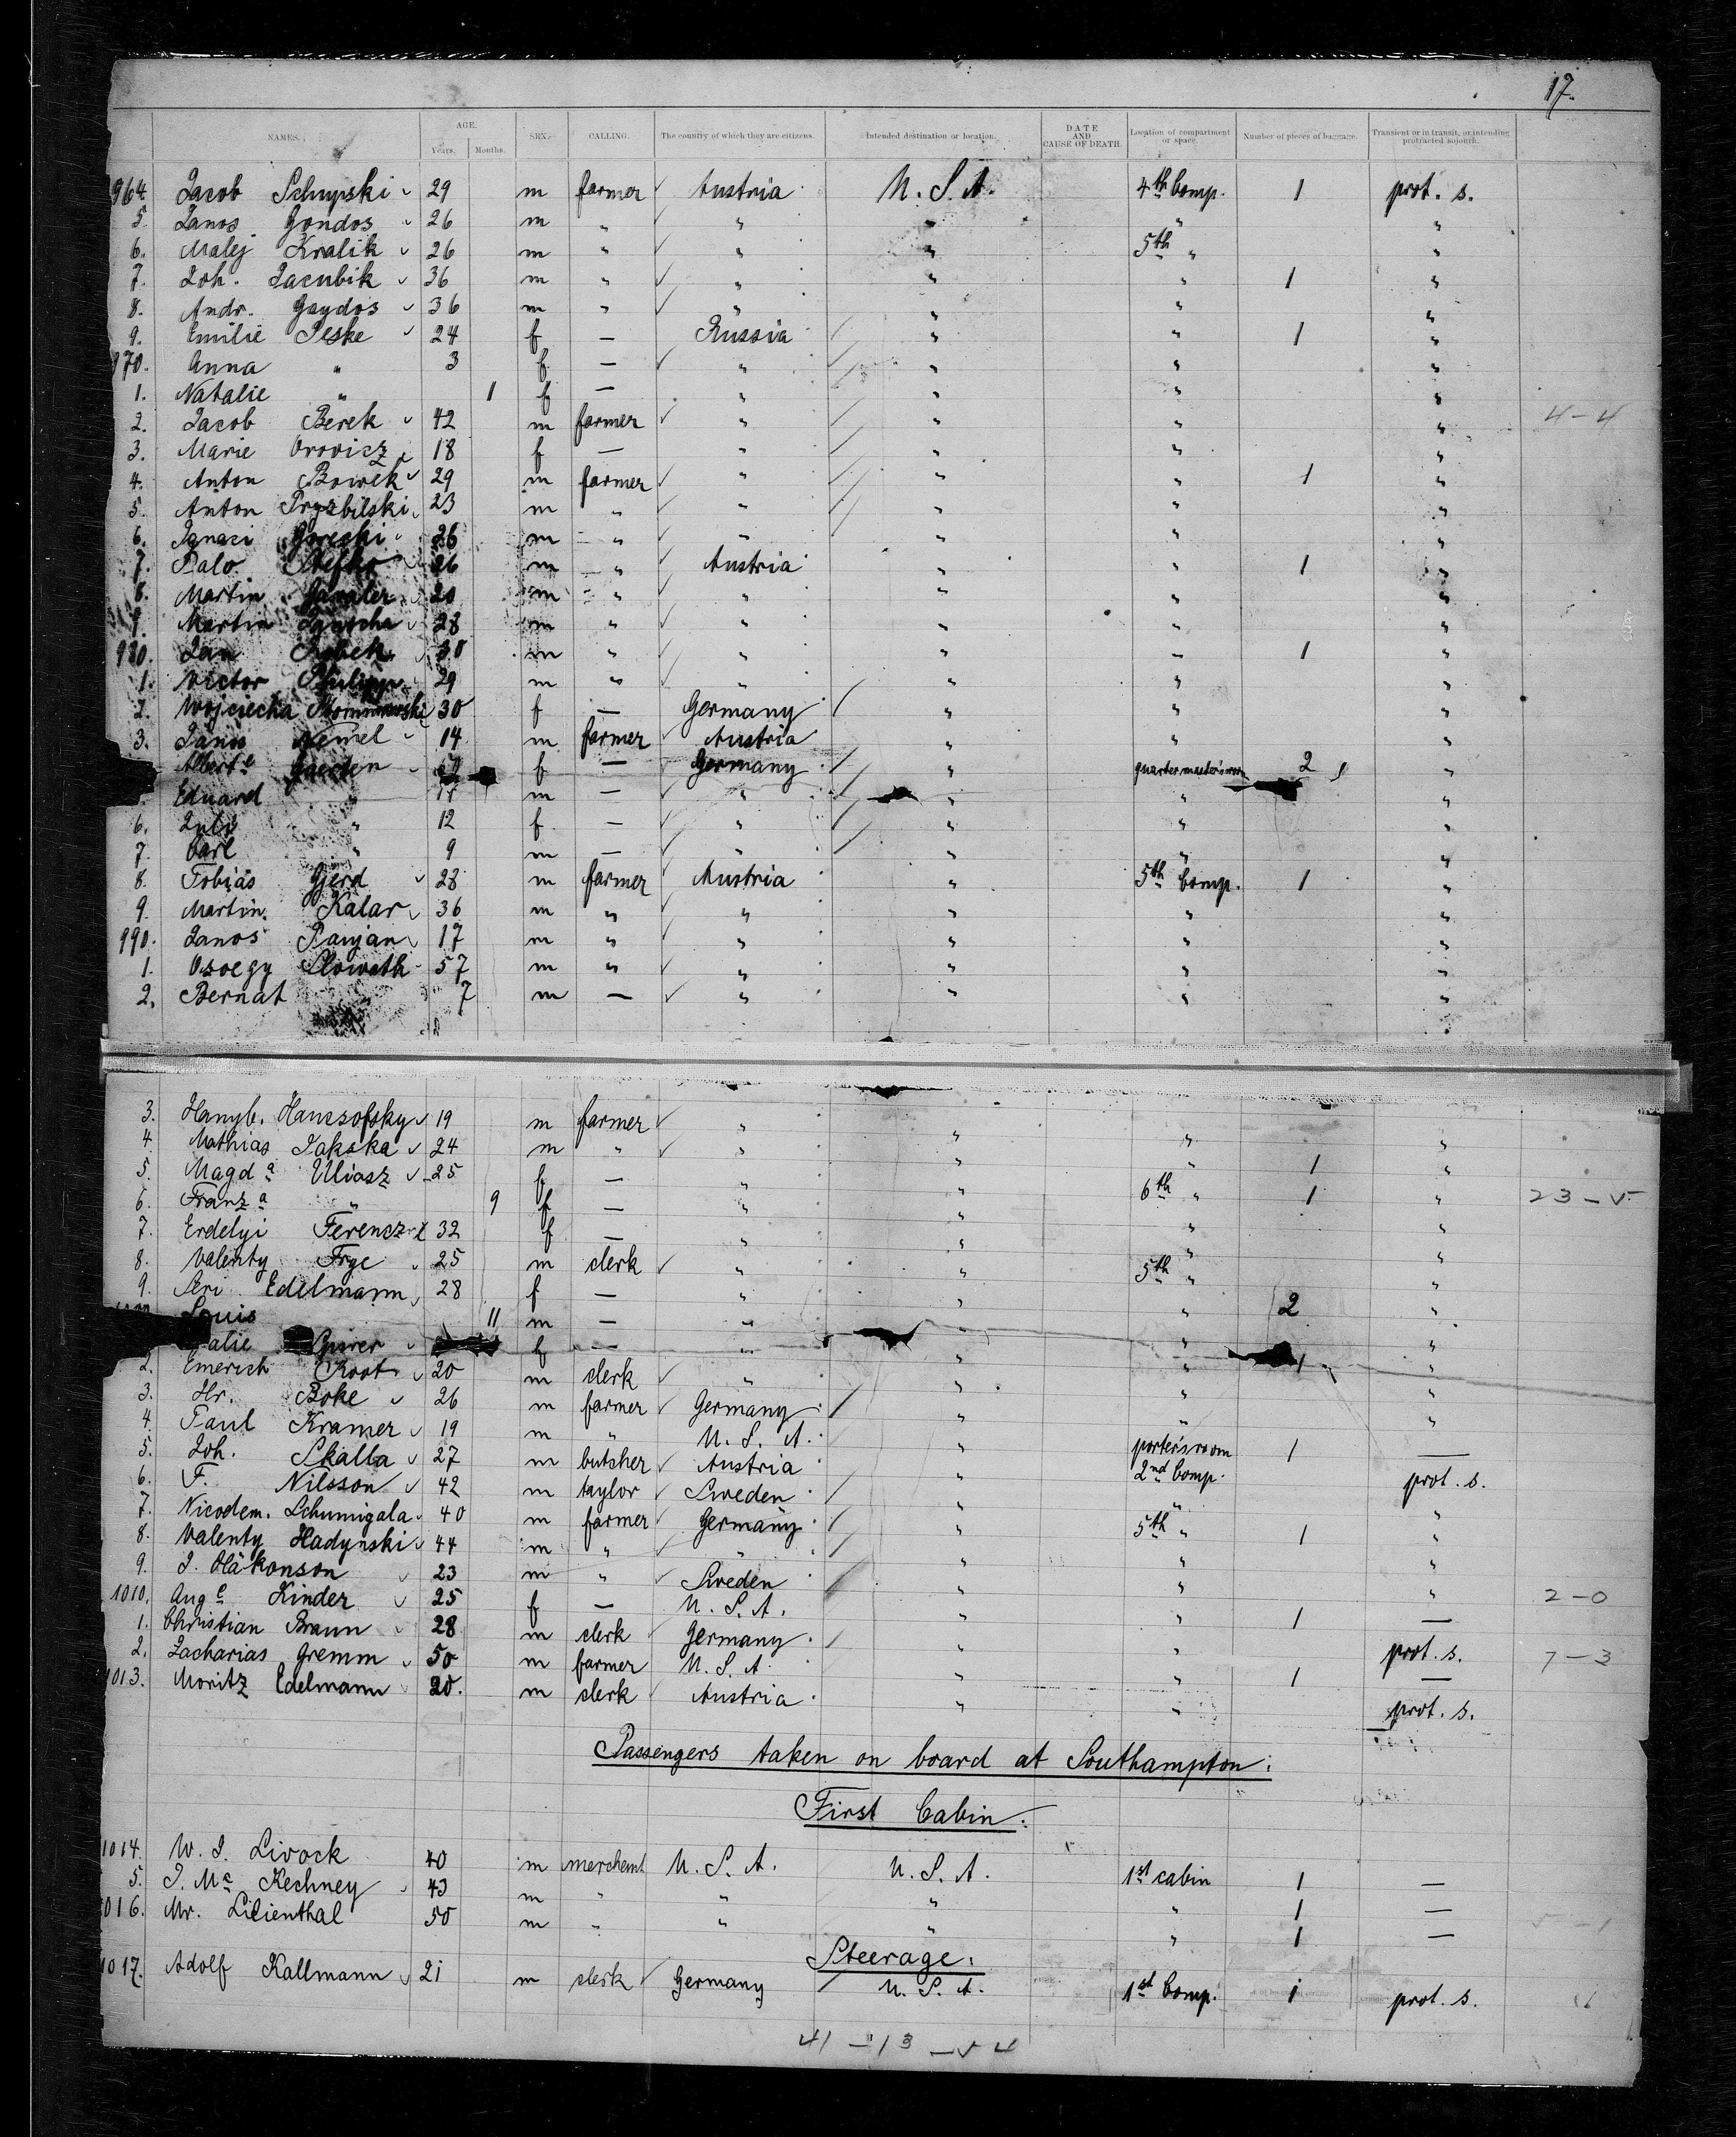 17.
NAMES. AGE. Years. Months. SEX. CALLING. The country of which they are citizens. Intended destination or location. DATE AND CAUSE OF DEATH. Location of compartment or space. Number of pieces of baggage. Transient or in transit, or intending protracted sojourn.
964. Jacob Schupski 29 m farmer Austria U. S. A. 4th Comp. 1 prot. s.
5. Janos Gondos 26 m " " " " "
6. Malej Kralik 26 m " " " 5th " "
7. Joh. Jacubik 36 m " " " " 1 "
8. Andr. Gaydos 36 m " " " " "
9. Emilie Jeske 24 f — Russia " " 1 "
970. Anna " 3 f — " " " "
1. Natalie " 1 f — " " " "
2. Jacob Berek 42 m farmer " " " " 4-4
3. Marie Orovicz 18 f — " " " "
4. Anton Bowek 29 m farmer " " " 1 "
5. Anton Pryzbilski 23 m " " " " "
6. Ignaci Goreski 26 m " " " " "
7. Palo 26 m " Austria " " 1 "
8. Martin 20 m " " " " "
9. Martin 28 m " " " " "
980. Jan 30 m " " " " 1 "
1. Victor Philipp 29 m " " " " "
2. Wojciecha 30 f — Germany " " "
3. Janos Nemel 14 m farmer Austria " " "
Albert e Gaerten f — Germany " quartermaster's room 2 "
Eduard " m — " " " "
6. " 12 f — " " " "
7. Carl " 9 m — " " " "
8. Tobias Gjerd 28 m farmer Austria " 5th Comp. 1 "
9. Martin Kalar 36 m " " " " "
990. Janos Panjan 17 m " " " " "
1. Slowath 57 m " " " " "
2. Bernat 7 m — " " " "
3. Hanzsofsky 19 m farmer " " " "
4. Mathias Jakska 24 m " " " " 1 "
5. Magd a Uliasz 25 f — " " 6th " 1 " 23-5
6. Franz a " 9 f — " " " "
7. Erdelyi Ferencz 32 f — " " " "
8. Valenty Frye 25 m clerk " " 5th " "
9. Edelmann 28 f — " " " 2 "
Louis 11 m — " " " "
f — " " " 1 "
2. Emerich Koot 20 m clerk " " " "
3. Hr. Boke 26 m farmer Germany " " "
4. Paul Kramer 19 m " U. S. A. " porter's room 1 —
5. Joh. Skalla 27 m butcher Austria " 2nd Comp. prot. s.
6. F. Nilsson 42 m taylor Sweden " " "
7. Nicodem. Schumigala 40 m farmer Germany " 5th " 1 "
8. Valenty Hadynski 44 m " " " " "
9. J. Håkonson 23 m " Sweden " " "
1010. Aug e Kinder 25 f — U. S. A. " " 1 — 2-0
1. Christian Braun 28 m clerk Germany " " prot. s.
2. Zacharias Gremm 50 m farmer U. S. A. " " 1 — 7-3
1013. Moritz Edelmann 20. m clerk Austria " " prot. s.
Passengers taken on board at Southampton:
First Cabin:
1014. W. J. Livock 40 m merchant U. S. A. U. S. A. 1st cabin 1 —
5. J. Mc Kechney 43 m " " " " 1 —
1016. Mr. Lilienthal 50 m " " " " 1 —
Steerage:
1017. Adolf Kallmann 21 m clerk Germany U. S. A. 1st Comp. 1 prot. s.